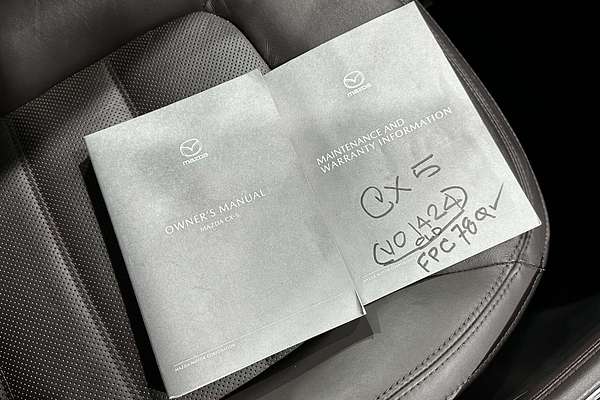 mazda
OWNER'S MANUAL
MAZDA CX-5
MAZDA MOTOR CORPORATION
mazda
MAINTENANCE AND
WARRANTY INFORMATION
CX 5
VO1424
OLD
FPC 78Q